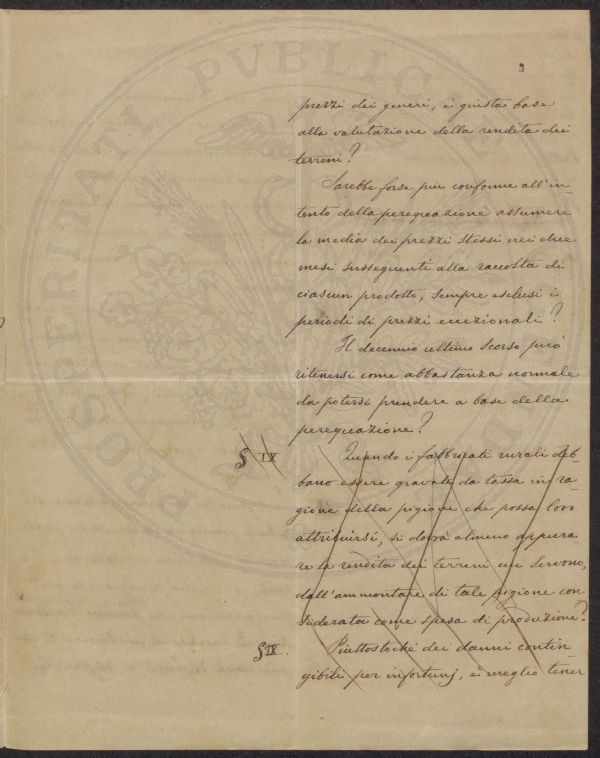 PROSPERITATI PUBLICAE
3
prezzi dei generi, è giusta base
alla valutazione della rendita dei
terreni?
Sarebbe forse più conforme all'in
tento della perequazione assumere
la media dei prezzi stessi nei due
mesi susseguenti alla raccolta di
ciascun prodotto, sempre esclusi i
periodi di prezzi eccezionali?
Il decennio ultimo scorso può
ritenersi come abbastanza normale
da potersi prendere a base della
perequazione?
§ IX
Quando i fabbricati rurali deb-
bano essere gravati da tassa in ra-
gione della pigione che possa loro
attribuirsi, si dovrà almeno appura-
re la rendita dei terreni cui servono,
dall'ammontare di tale pigione con-
siderata come spesa di produzione?
§ IX.
Piuttostochè dei danni contin-
gibili per infortunj, è meglio tener